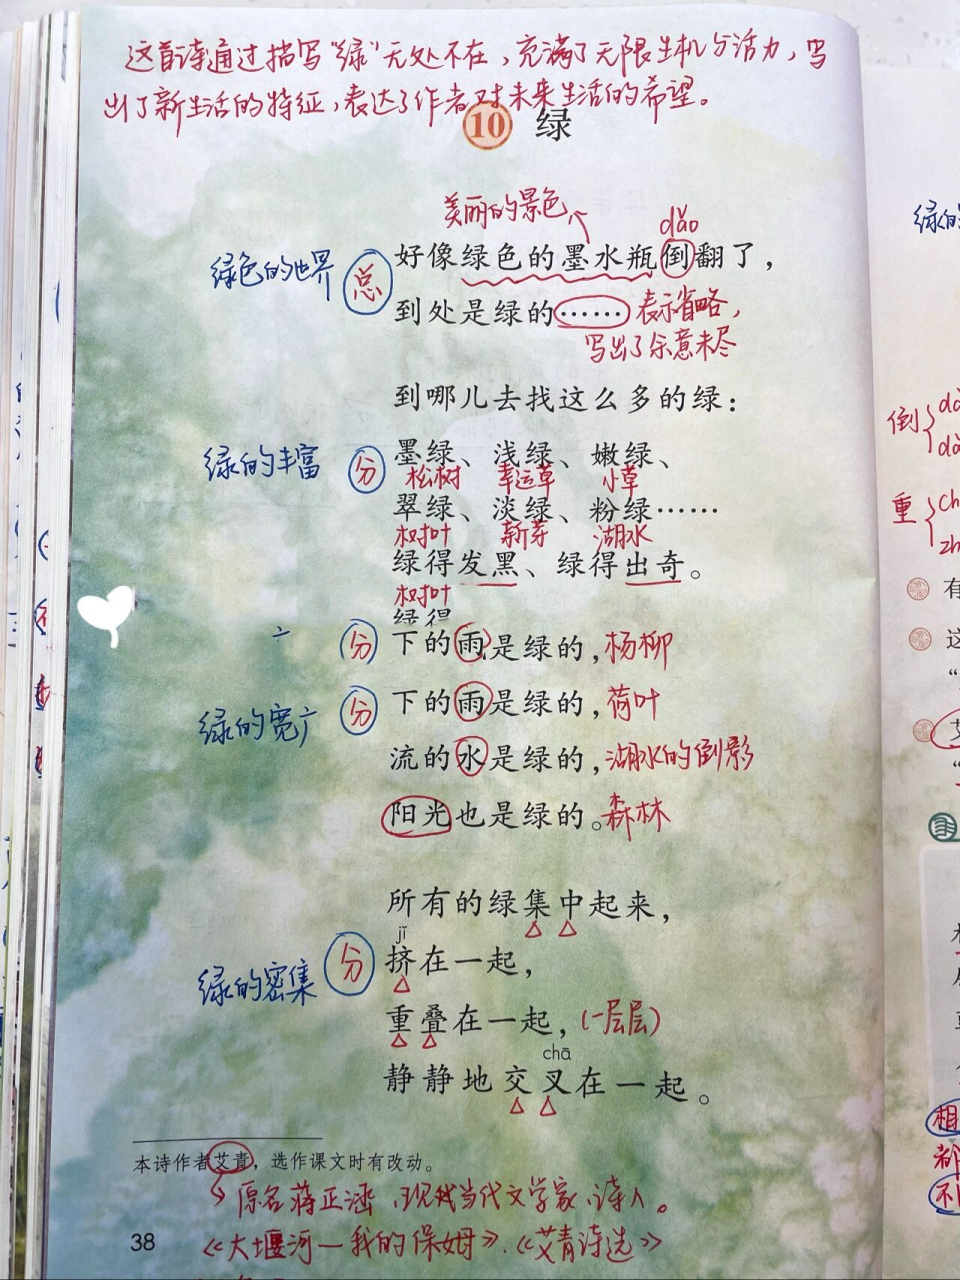 这首诗通过描写"绿"无处不在，充满了无限生机与活力，写
出了新生活的特征，表达了作者对未来生活的希望。
10 绿
美丽的景色
dǎo
绿色的世界 总 好像绿色的墨水瓶倒翻了，
到处是绿的…… 表示省略，
写出了余意未尽
到哪儿去找这么多的绿：
绿的丰富 分 墨绿、浅绿、嫩绿、
松树 幸运草 小草
翠绿、淡绿、粉绿……
树叶 新芽 湖水
绿得发黑、绿得出奇。
树叶
绿得
分 下的雨是绿的，杨柳
绿的宽广 分 下的雨是绿的，荷叶
流的水是绿的，湖水的倒影
阳光也是绿的。森林
所有的绿集中起来，
jǐ
绿的密集 分 挤在一起，
重叠在一起，(一层层)
chā
静静地交叉在一起。
本诗作者艾青，选作课文时有改动。
原名蒋正涵，现代当代文学家、诗人。
38 《大堰河—我的保姆》、《艾青诗选》
绿的
倒
重
有
这
相
都
不